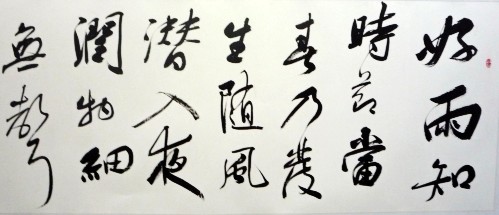 好雨知
時節當
春乃發
生随風
潜入夜
潤物細
無聲